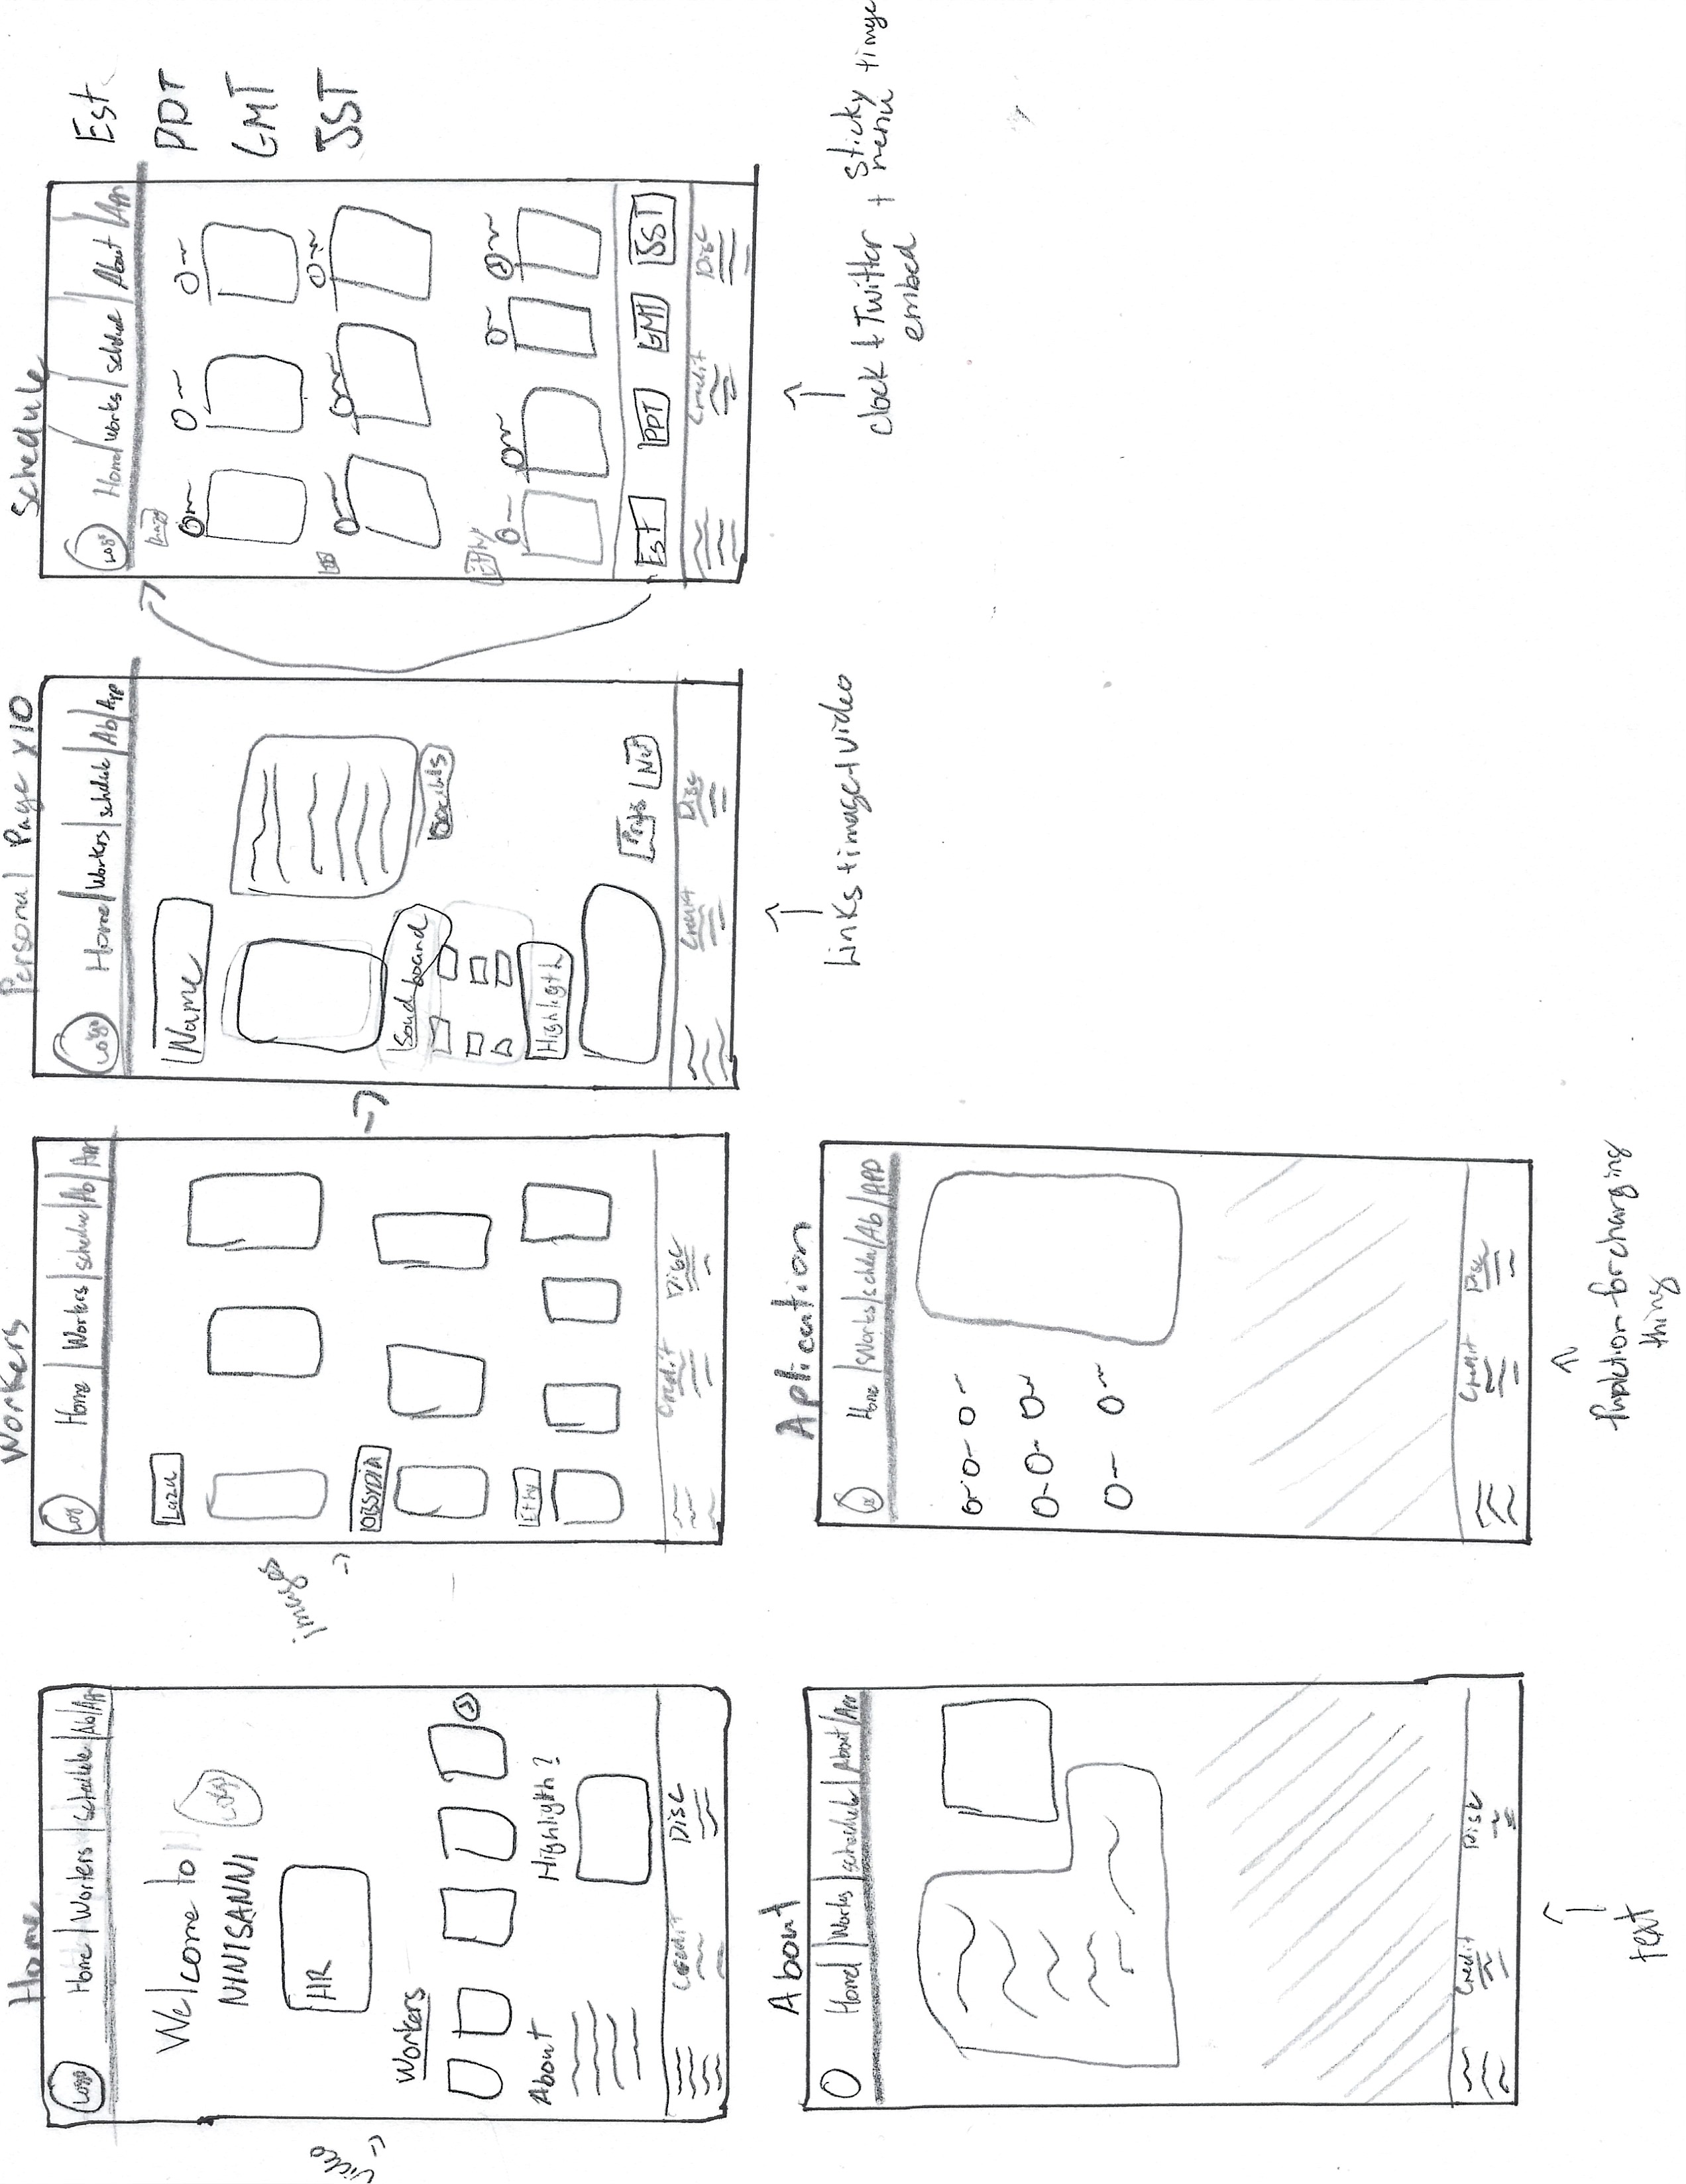 Home
Logo
Home | Workers | schedule | Ab | App
Welcome to
NINISANNI
Logo
HR
video
Workers
About
Highligth ?
Credit
Disc
Workers
Log
Home | Workers | schedule | Ab | App
images
Lazu
OBSYDIA
Ethy
Credit
Disc
Personal Page x10
Logo
Home | Workers | schdule | Ab | App
Name
Soud board
Socials
Highligth
Credit
Disc
Links + image + video
Schedule
Logo
Home / works / schdule / About / App
Est
PDT
GMT
JST
Ethy
Est
PDT
GMT
JST
Credit
Disc
clock + Twitter embed + sticky menu + image
About
Home | Works | schedule | About / App
Credit
Disc
text
Aplication
Home / Works / schdu / Ab / APP
Credit
Disc
thing